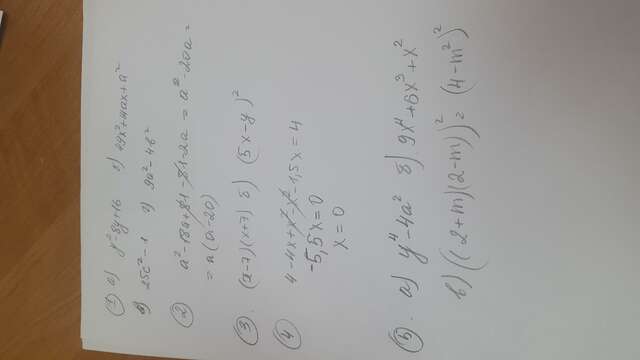 ① а) y²-8y+16 б) 49x²+14ax+a²
в) 25c²-1 г) 9a²-4b²
② a²-18a+81-81-2a = a²-20a =
= a(a-20)
③. (x-7)(x+7) б) (5x-y)²
④ 4-4x+x²-x²-1,5x=4
-5,5x=0
x=0
⑤. а) y⁴-4a² б) 9x⁴+6x³+x²
в) ((2+m)(2-m))² = (4-m²)²